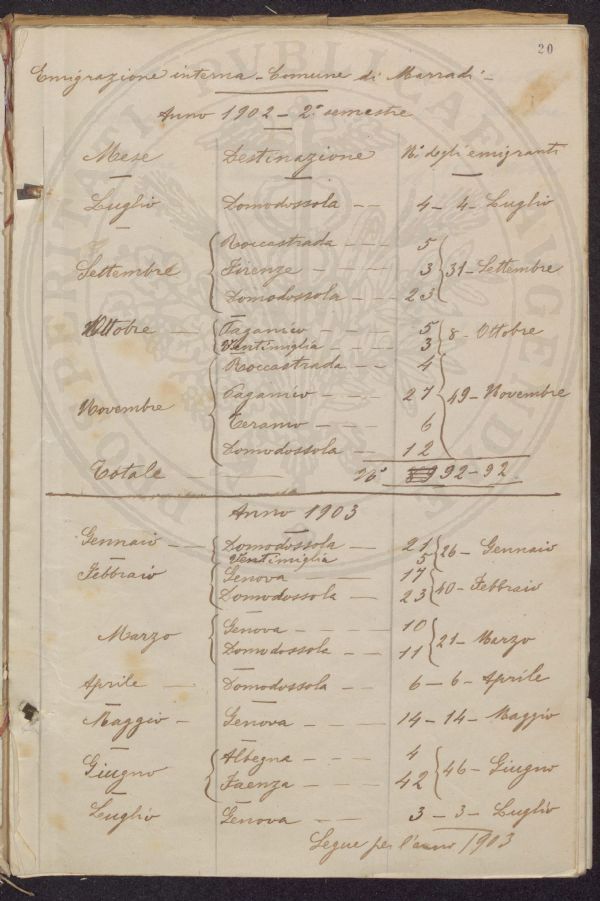 20
Emigrazione interna - Comune di Marradi -
Anno 1902 - 2° semestre
Mese Destinazione N.i degli emigranti
Luglio Domodossola -- 4 - 4 - Luglio
Roccastrada --- 5
Settembre Firenze ---- 3 31 - Settembre
Domodossola -- 23
Ottobre -- Paganico --- 5 8 - Ottobre
Ventimiglia -- 3
Roccastrada -- 4
Paganico --- 27 49 - Novembre
Novembre Teramo --- 6
Domodossola -- 12
Totale ---- N° 92 - 92
Anno 1903
Gennaio -- Domodossola -- 21 26 - Gennaio
Ventimiglia 5
Febbraio Genova --- 17 40 - Febbraio
Domodossola -- 23
Genova ---- 10
Marzo 21 - Marzo
Domodossola -- 11
Aprile -- Domodossola -- 6 - 6 - Aprile
Maggio - Genova --- 14 - 14 - Maggio
Albegna --- 4
Giugno 46 - Giugno
Faenza --- 42
Luglio Genova --- 3 - 3 - Luglio
Segue per l'anno 1903
PVBLICAE